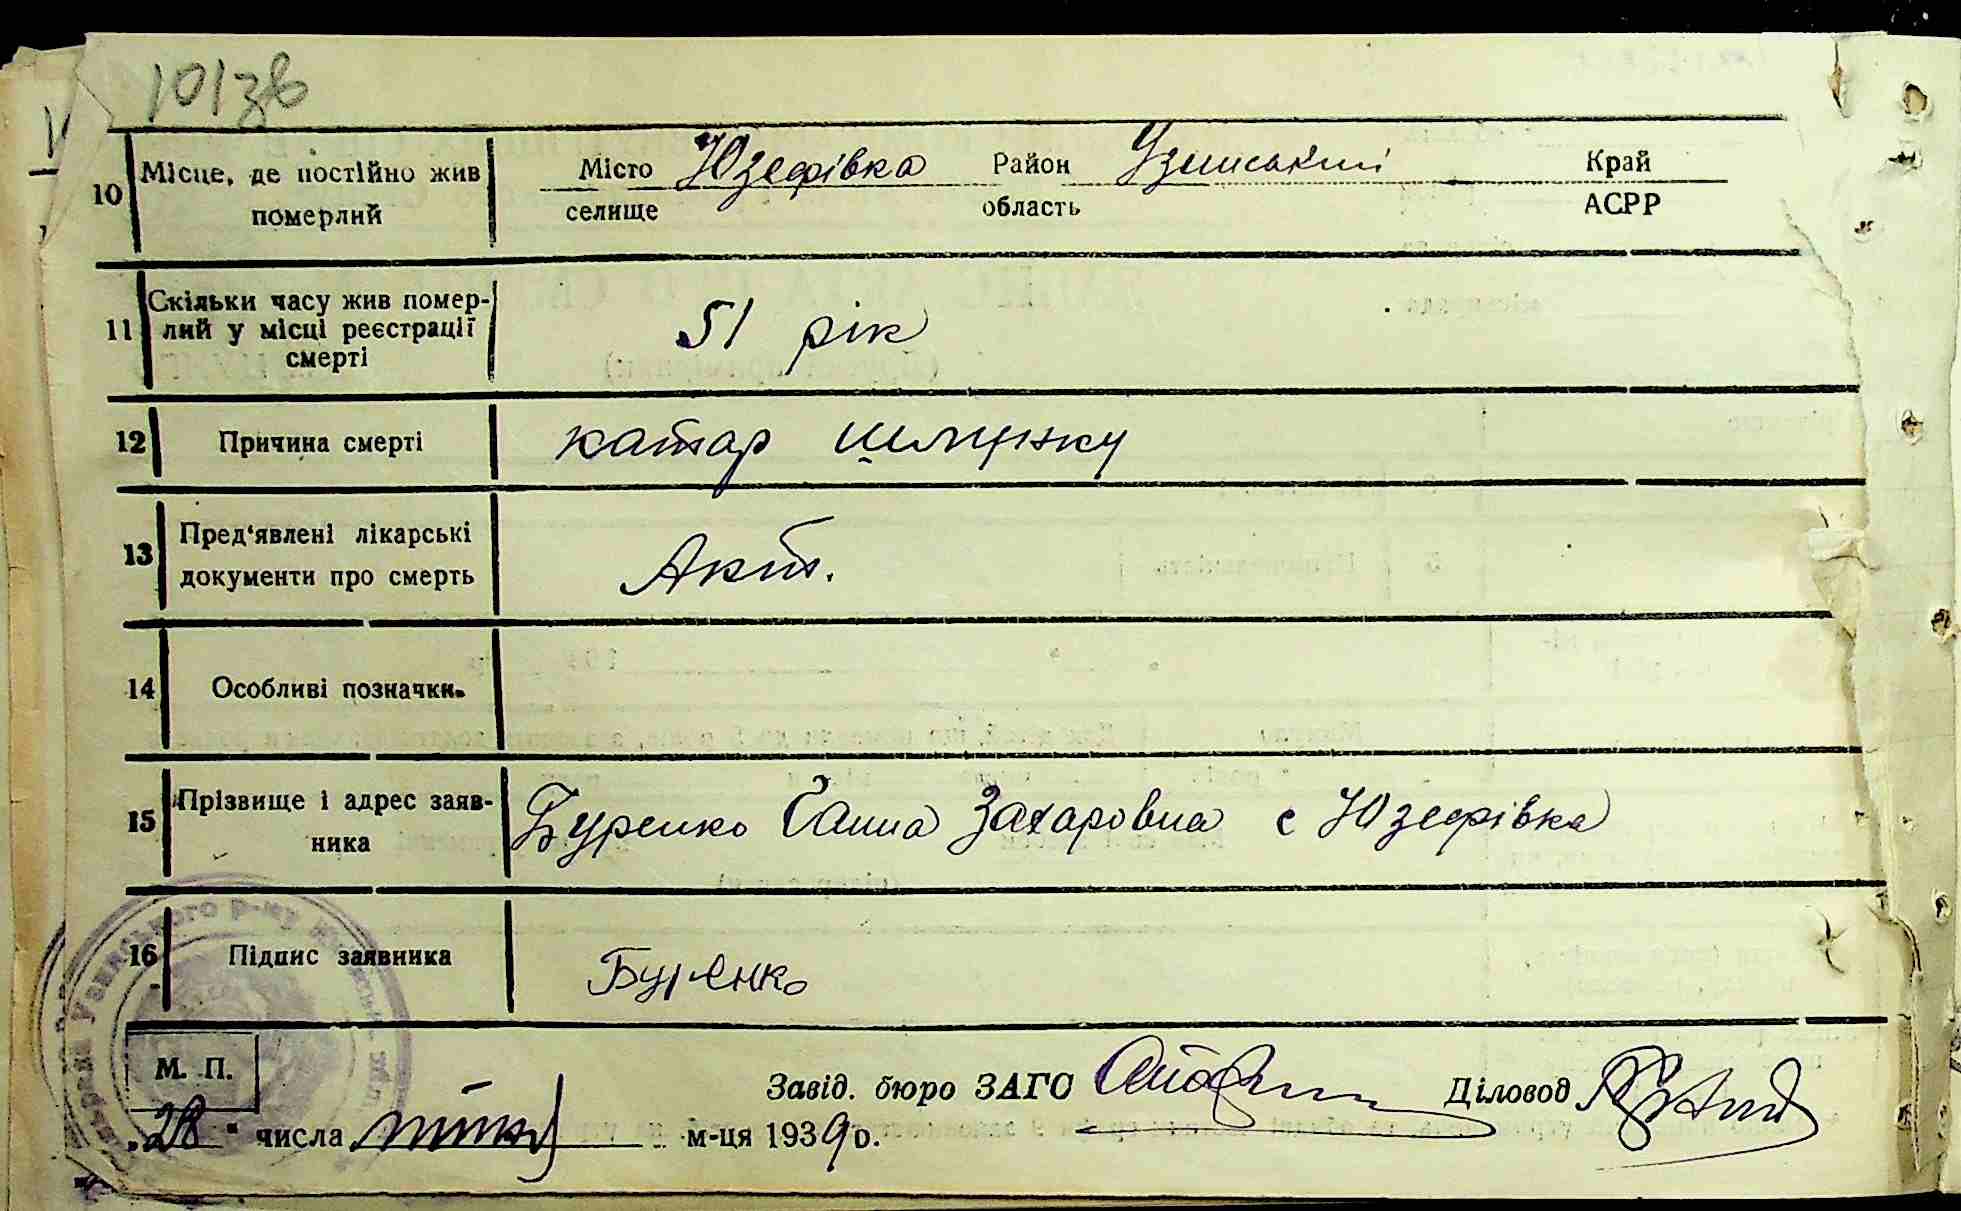 101зв
10 Місце, де постійно жив померлий
Місто селище Юзефівка Район область Узинський Край АСРР
11 Скільки часу жив помер-
лий у місці реєстрації
смерті
51 рік
12 Причина смерті катар шлунку
13 Пред'явлені лікарські
документи про смерть
Акт.
14 Особливі позначки.
15 Прізвище і адрес заяв-
ника
Буренко Ганна Захаровна с Юзефівка
16 Підпис заявника Буренко
М. П.
Завід. бюро ЗАГС Діловод
„28" числа м-ця 1939 р.